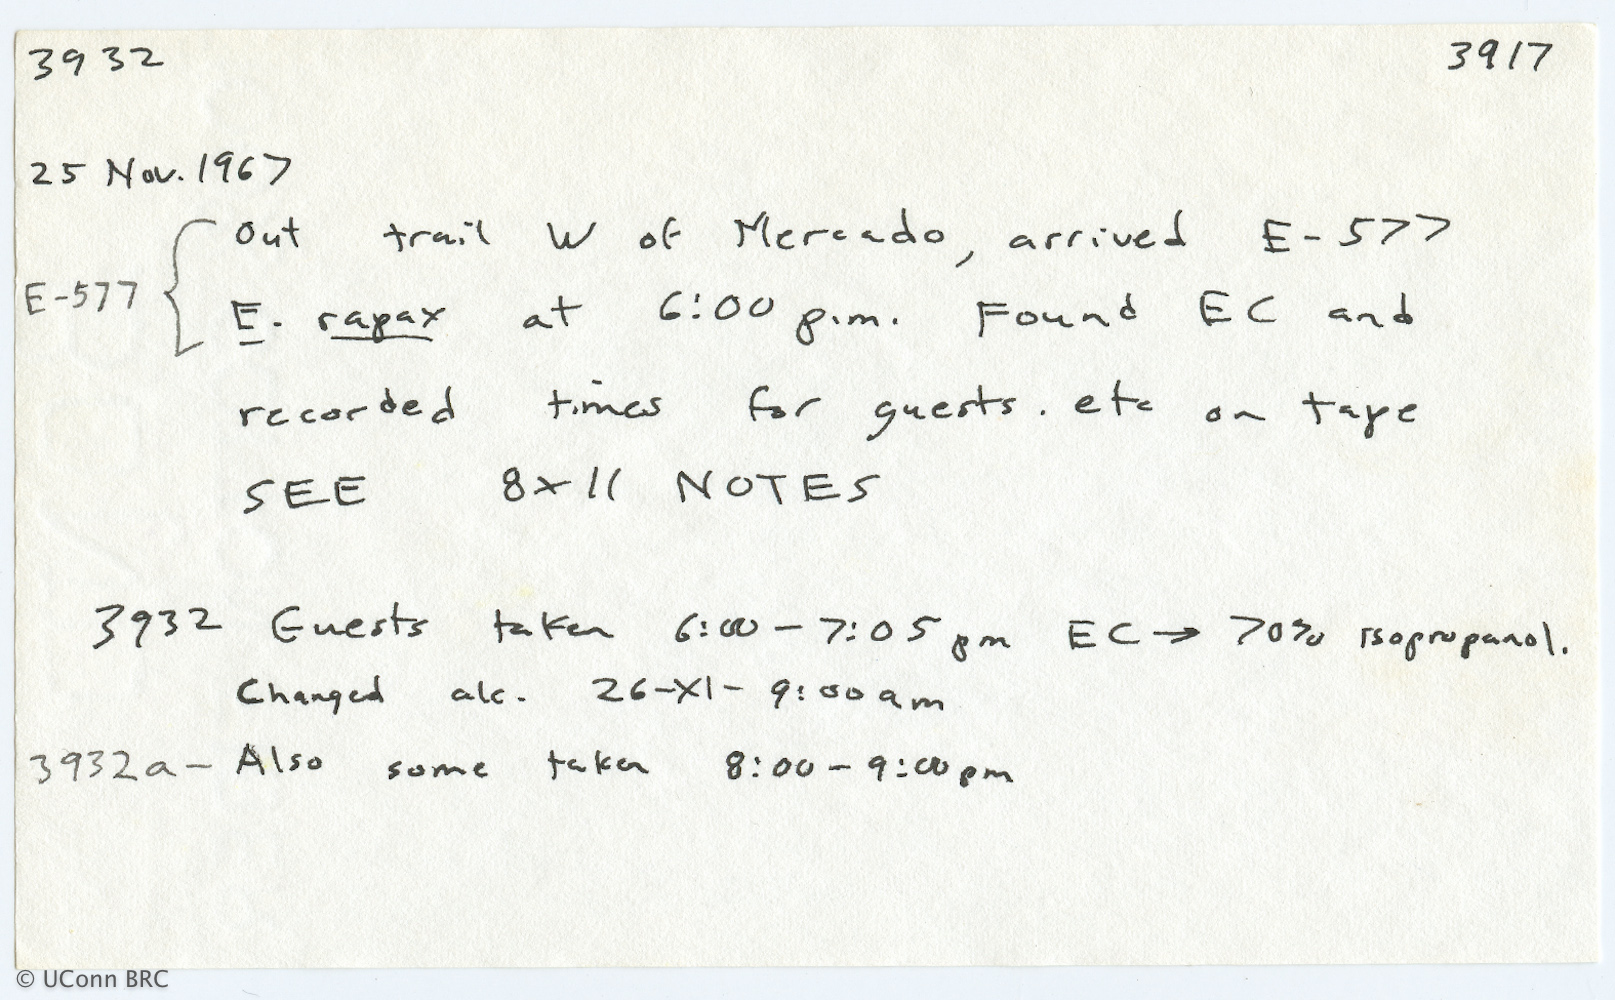 3932 3917
25 Nov. 1967
Out trail W of Mercado, arrived E-577
E-577 { E. rapax at 6:00 p.m. Found EC and
recorded times for guests. etc on tape
SEE 8x11 NOTES
3932 Guests taken 6:00-7:05 pm EC → 70% isopropanol.
Changed alc. 26-XI- 9:00 am
3932a- Also some taken 8:00-9:00 pm
© UConn BRC